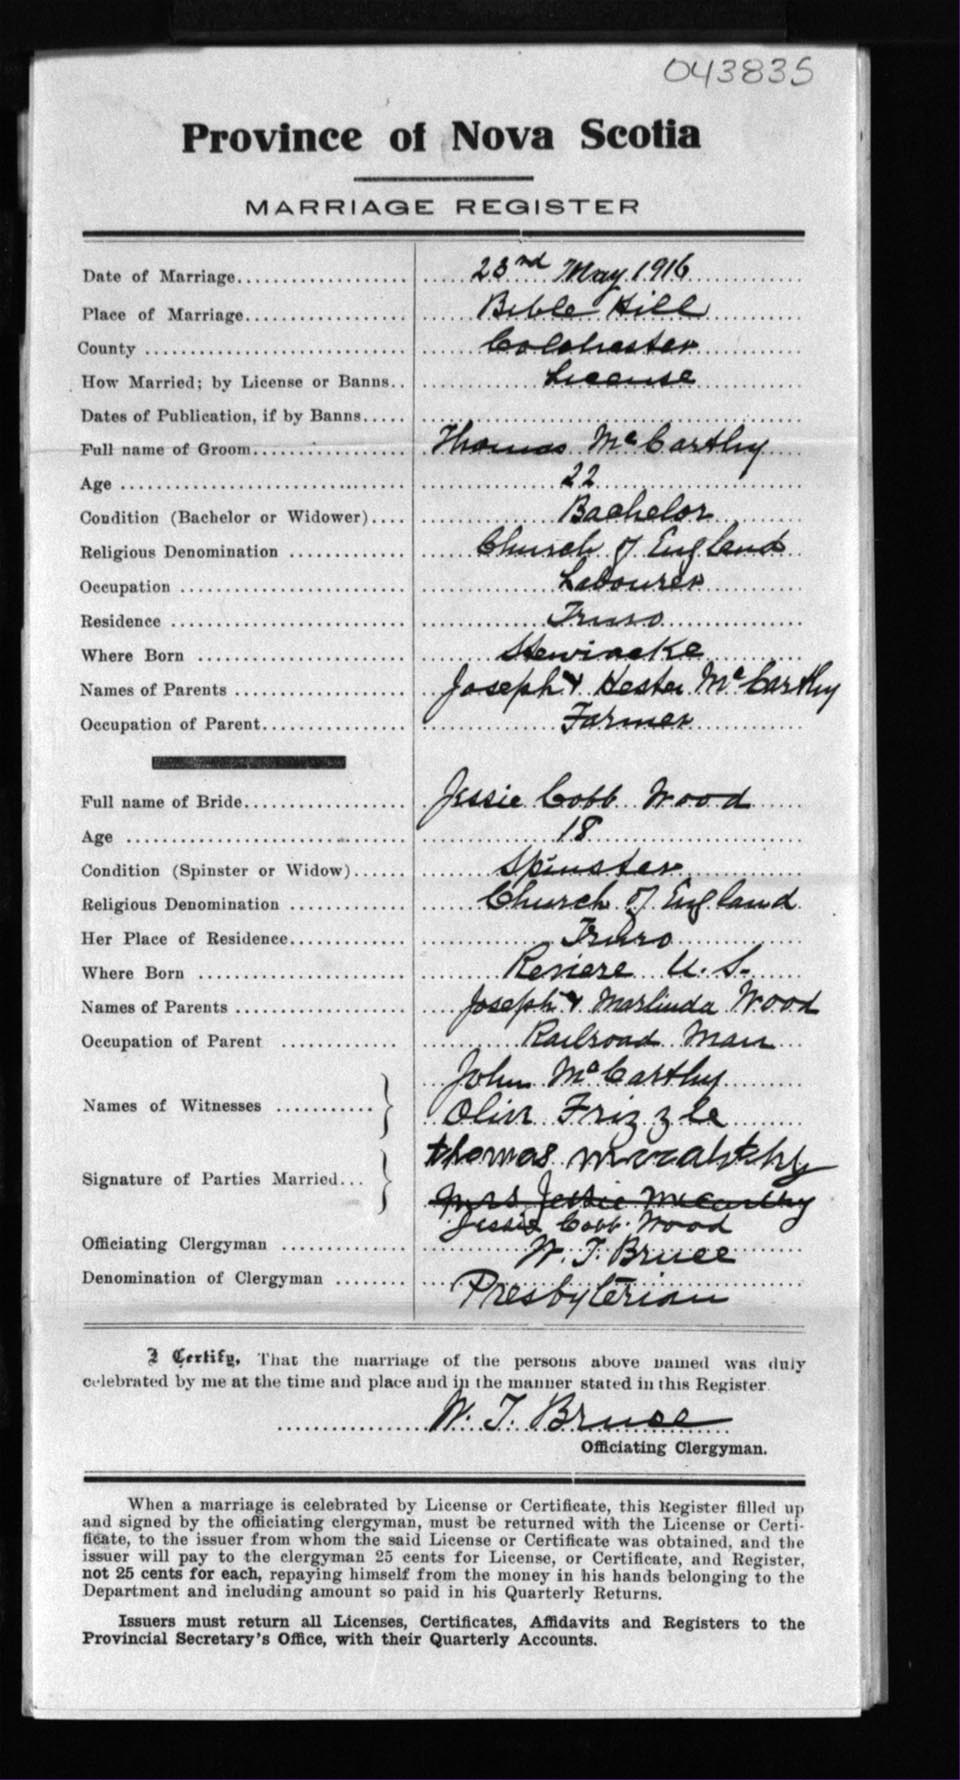 043835
Province of Nova Scotia
MARRIAGE REGISTER
Date of Marriage.................. 23rd May 1916
Place of Marriage.................. Bible Hill
County .................. Colchester
How Married; by License or Banns.. License
Dates of Publication, if by Banns.....
Full name of Groom.................. Thomas McCarthy
Age .................. 22
Condition (Bachelor or Widower).... Bachelor
Religious Denomination ............ Church of England
Occupation .................. Labourer
Residence .................. Truro
Where Born .................. Stewiacke
Names of Parents .................. Joseph & Hester McCarthy
Occupation of Parent.................. Farmer
Full name of Bride.................. Jessie Cobb Wood
Age .................. 18
Condition (Spinster or Widow)...... Spinster
Religious Denomination ............ Church of England
Her Place of Residence............. Truro
Where Born .................. Reviere U. S.
Names of Parents .................. Joseph & Marlinda Wood
Occupation of Parent ............. Railroad Man
John McCarthy
Names of Witnesses ........... Oliver Frizzle
thomas mccarthy
Signature of Parties Married... Mrs Jessie McCarthy
Jessie Cobb Wood
Officiating Clergyman ............. W. T. Bruce
Denomination of Clergyman ........ Presbyterian
I Certify, That the marriage of the persons above named was duly
celebrated by me at the time and place and in the manner stated in this Register.
W. T. Bruce
Officiating Clergyman.
When a marriage is celebrated by License or Certificate, this Register filled up
and signed by the officiating clergyman, must be returned with the License or Certi-
ficate, to the issuer from whom the said License or Certificate was obtained, and the
issuer will pay to the clergyman 25 cents for License, or Certificate, and Register,
not 25 cents for each, repaying himself from the money in his hands belonging to the
Department and including amount so paid in his Quarterly Returns.
Issuers must return all Licenses, Certificates, Affidavits and Registers to the
Provincial Secretary's Office, with their Quarterly Accounts.